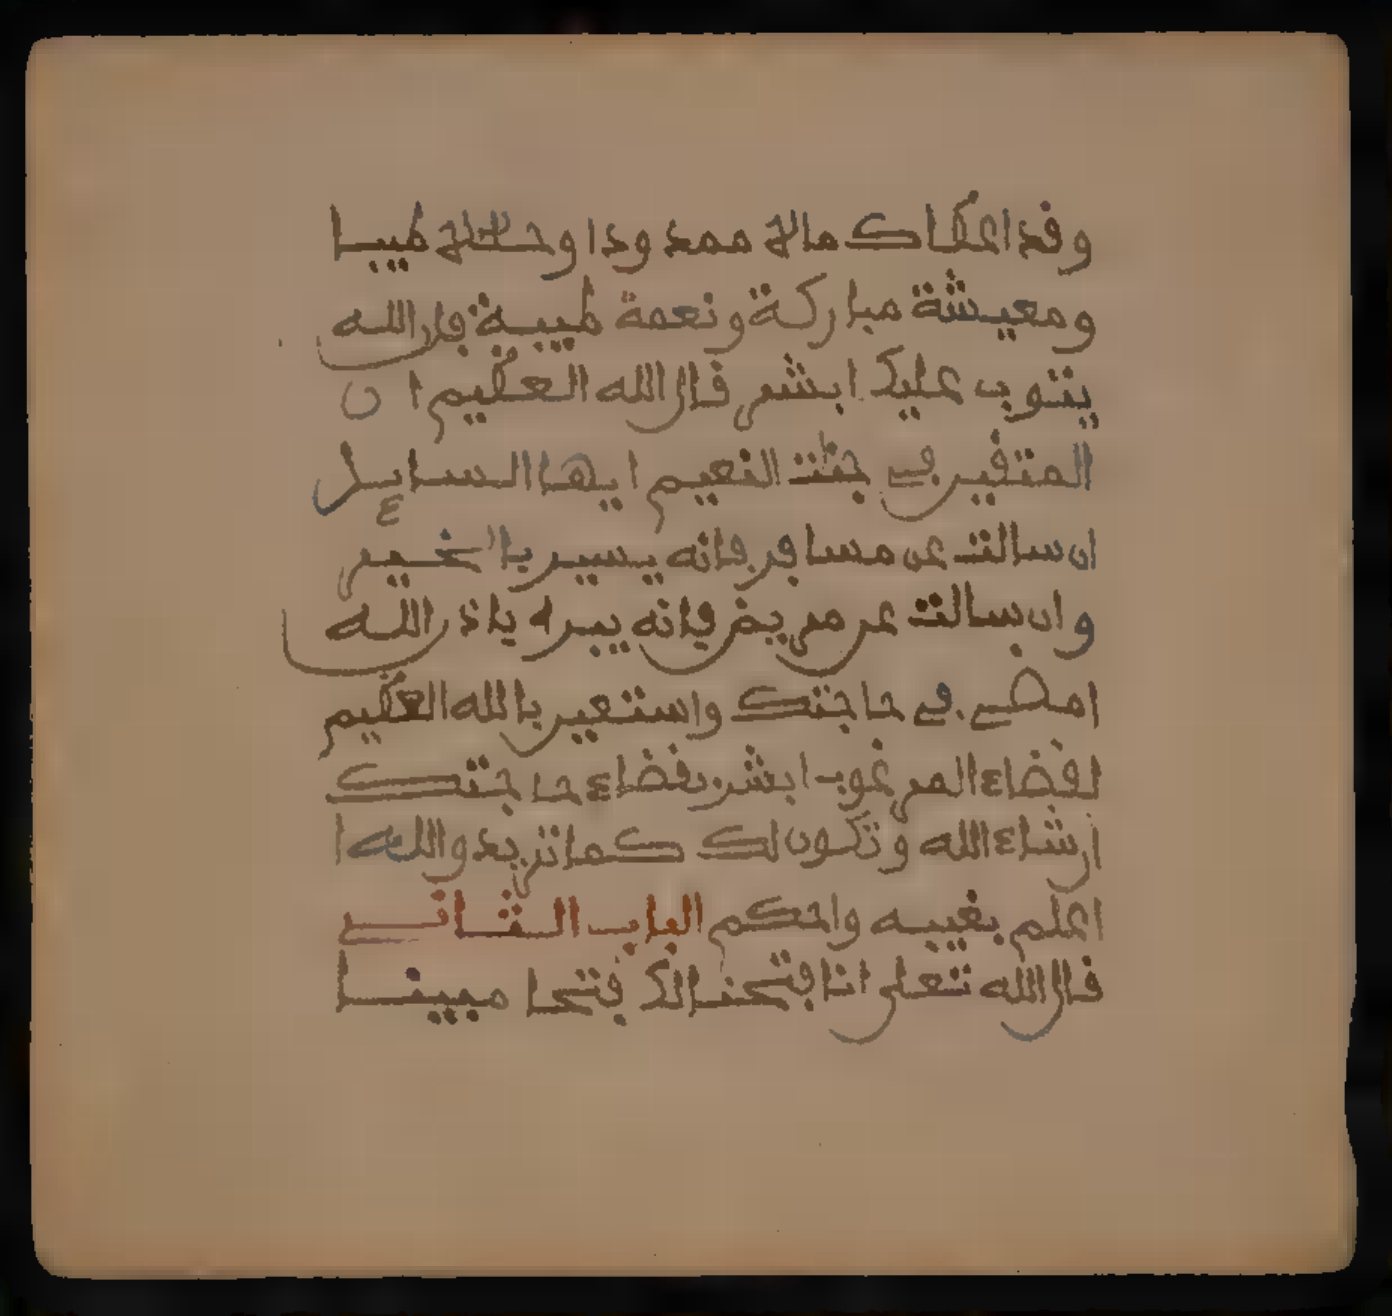 وقد اعطاك مالا ممدودا وحللا طيبا
ومعيشة مباركة ونعمة طيبة فان الله
يتوب عليك ابشر قال الله العظيم ان
المتقين في جنت النعيم ايها السايل
ان سالت عن مسافر فانه يسير بالخير
وان سالت عن مريض فانه يبرا باذن الله
امض في حاجتك واستعين بالله العظيم
لقضاء المرغوب ابشر بقضاء حاجتك
ان شاء الله وتكون لك كما تريد والله ا
اعلم بغيبه واحكم الباب الثاني
قال الله تعلى انا فتحنا لك فتحا مبينا